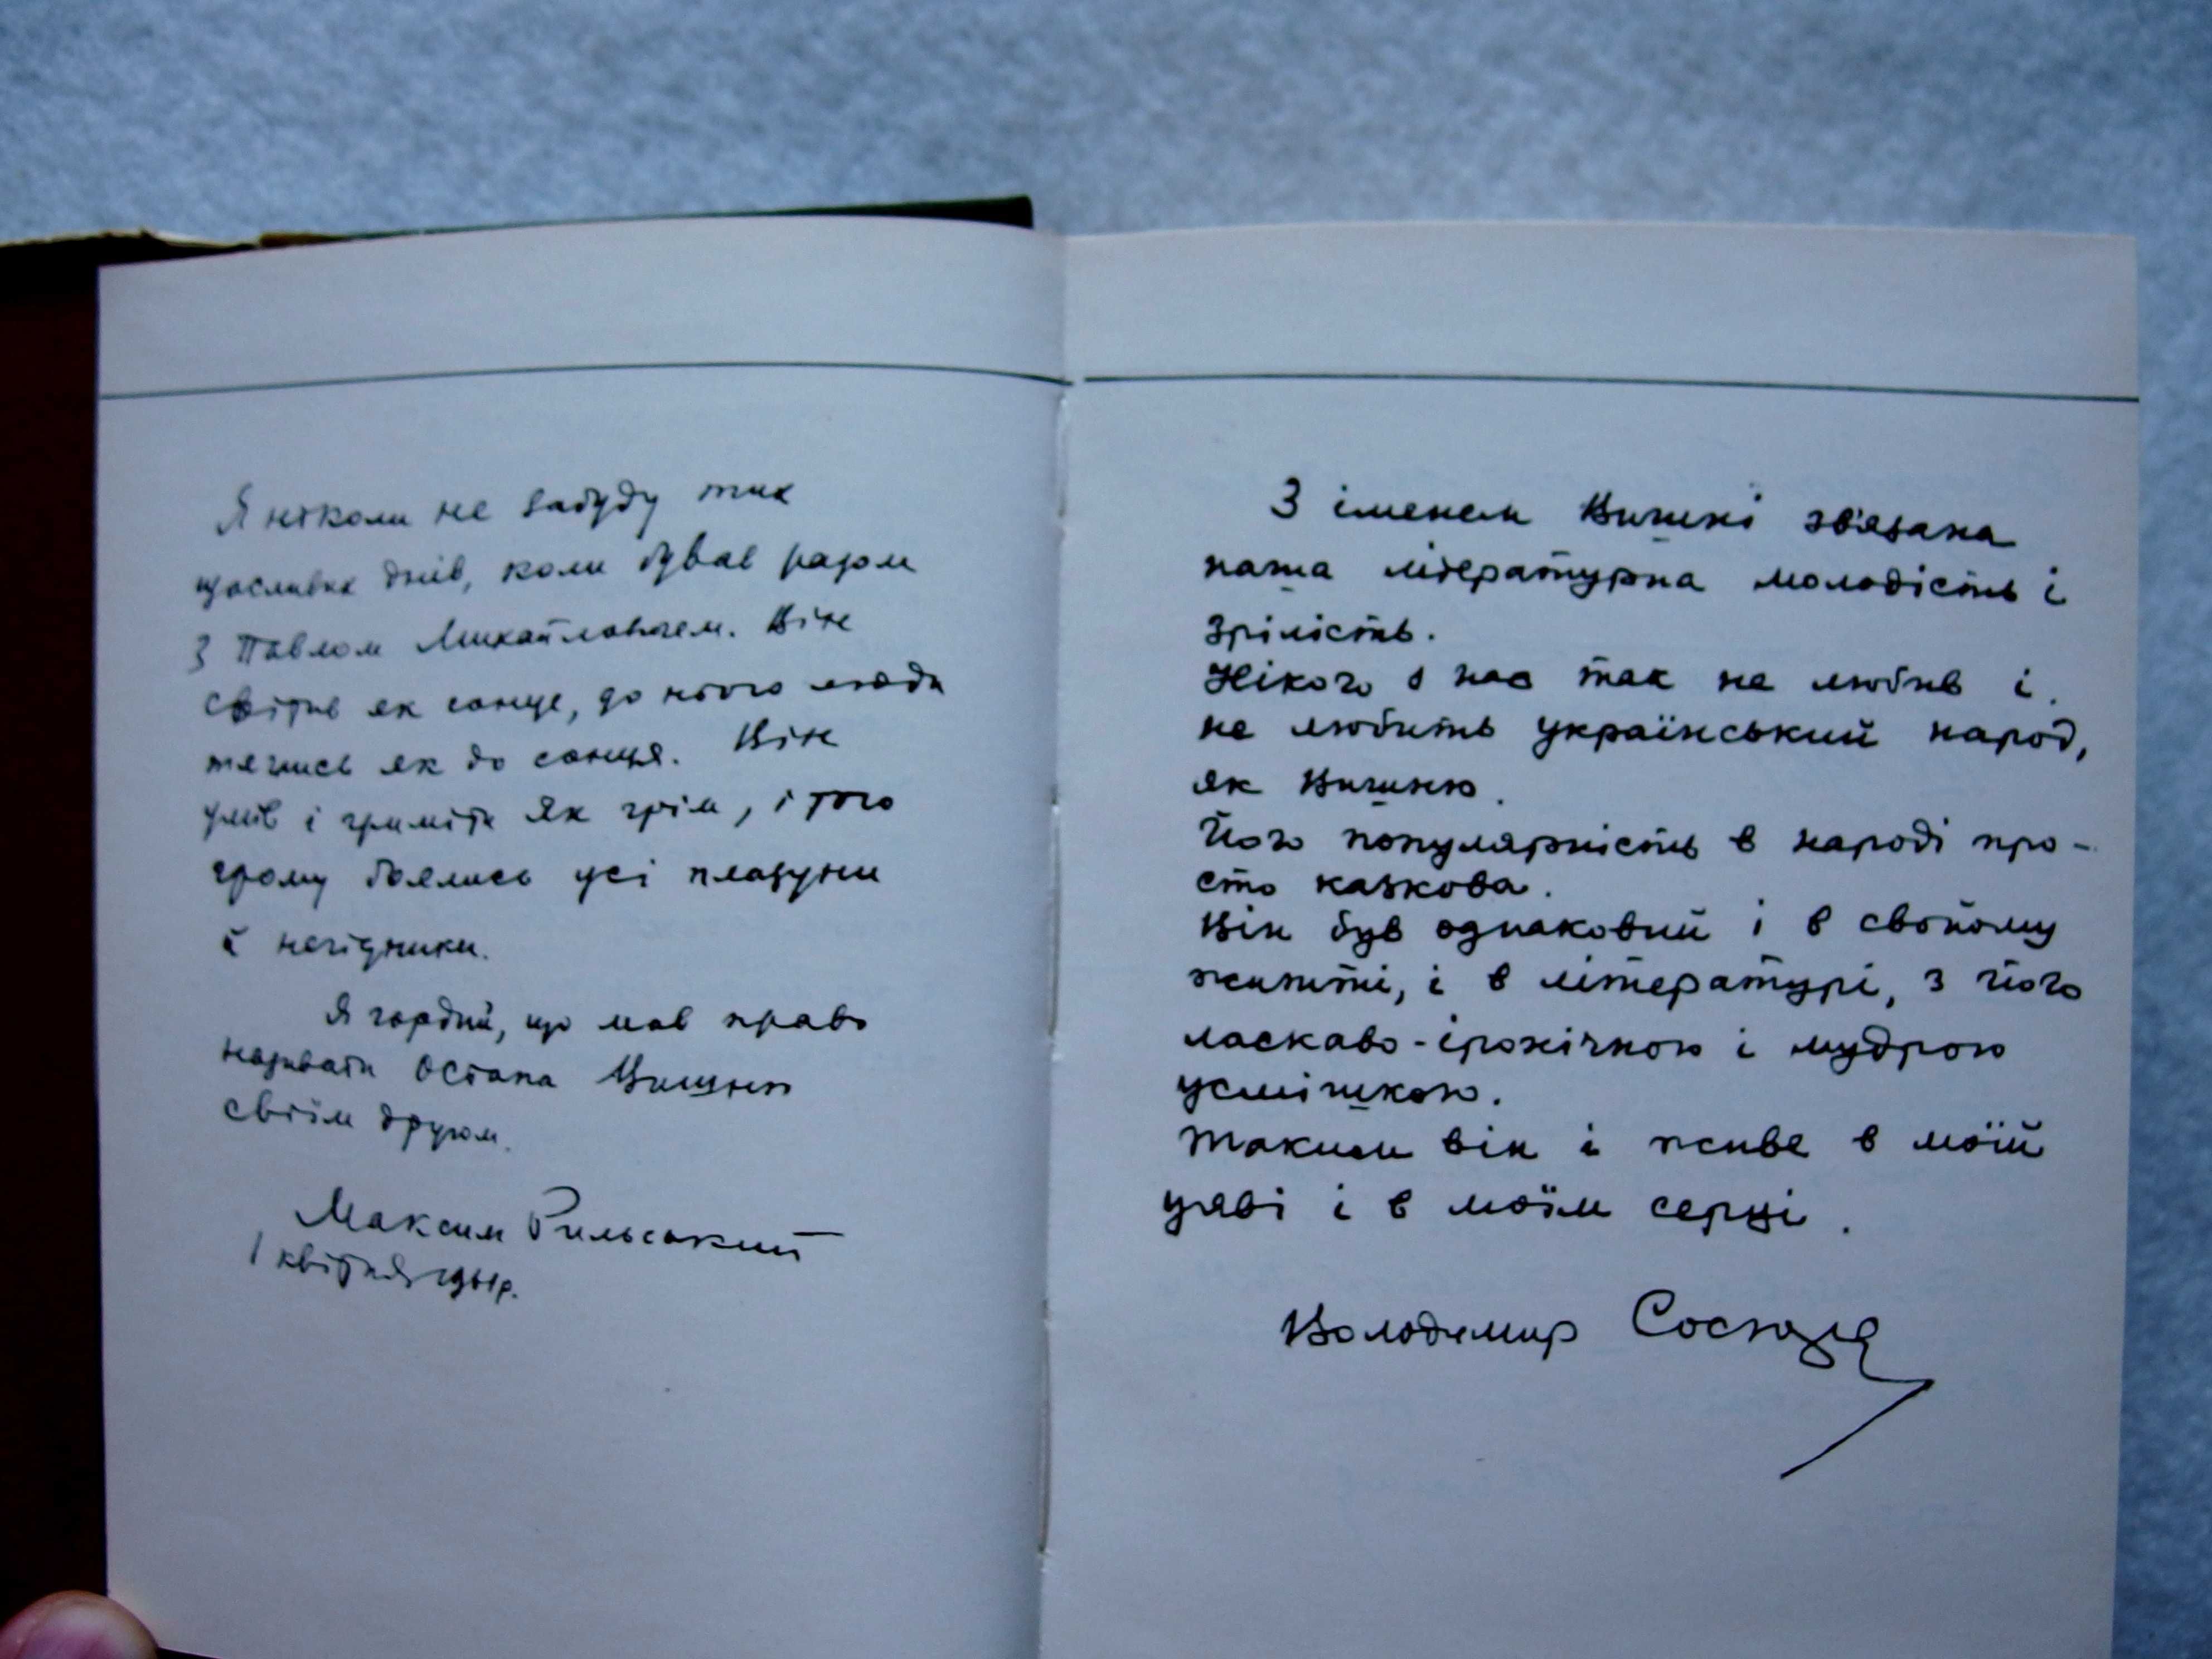 Я ніколи не забуду тих
щасливих днів, коли бував разом
з Павлом Михайловичем. Він
світив як сонце, до нього люди
тяглись як до сонця. Він
умів і гриміти як грім, і того
грому боялись усі плазуни
й негідники.
Я гордий, що мав право
називати Остапа Вишню
своїм другом.
Максим Рильський
1 квітня р.
З іменем Вишні зв'язана
наша літературна молодість і
зрілість.
Нікого з нас так не любив і
не любить український народ,
як Вишню.
Його популярність в народі про-
сто казкова.
Він був однаковий і в свойому
житті, і в літературі, з його
ласкаво-іронічною і мудрою
усмішкою.
Таким він і живе в моїй
уяві і в моїм серці.
Володимир Сосюра